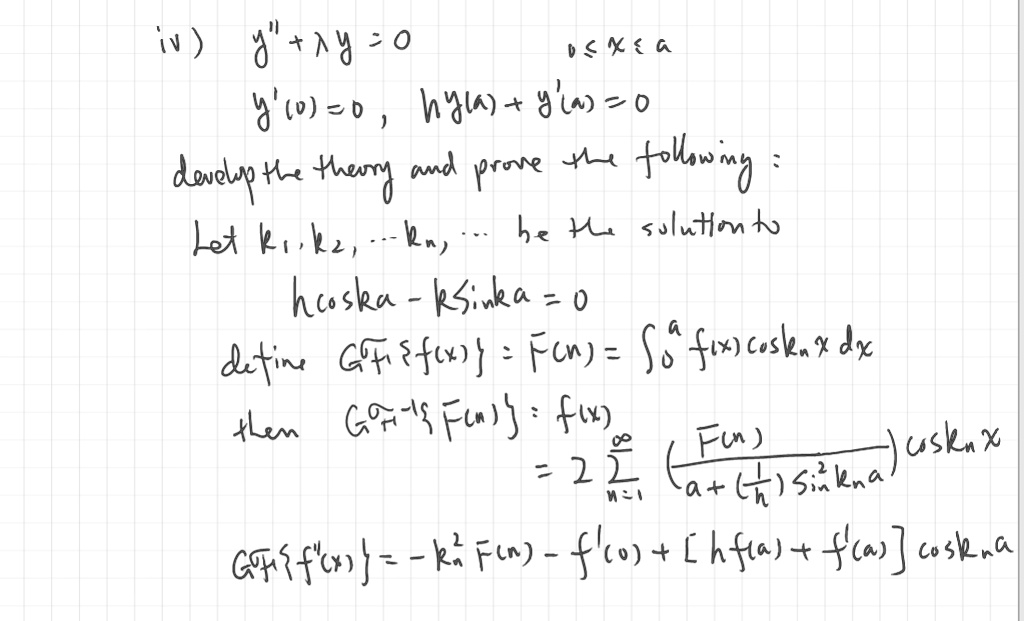 iv) y'' + λy = 0 0 ≤ x ≤ a
y'(0) = 0, hy(a) + y'(a) = 0
develop the theory and prove the following:
Let k₁, k₂, ... kₙ, ... be the solution to
h cos ka - k sin ka = 0
define GFT{f(x)} = F(n) = ∫₀ᵃ f(x) cos kₙx dx
then GFT⁻¹{F(n)} = f(x)
= 2 ∑ₙ₌₁^∞ (F(n) / (a + (1/h) sin² kₙa)) cos kₙx
GFT{f''(x)} = -kₙ² F(n) - f'(0) + [hf(a) + f'(a)] cos kₙa